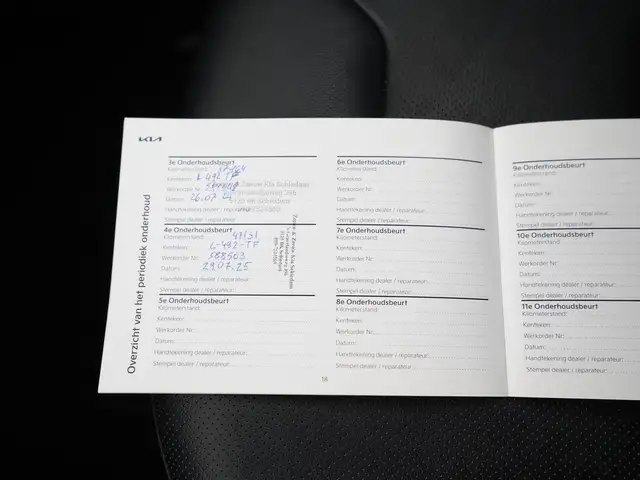 KIA
Overzicht van het periodiek onderhoud
3e Onderhoudsbeurt
Kilometerstand:
Kenteken: G-492-TF
Werkorder Nr:
Datum: 26.07
Handtekening dealer / reparateur:
Stempel dealer / reparateur:
4e Onderhoudsbeurt
Kilometerstand: 47131
Kenteken: G-492-TF
Werkorder Nr: 568503
Datum: 29.07.25
Handtekening dealer / reparateur:
Stempel dealer / reparateur:
5e Onderhoudsbeurt
Kilometerstand:
Kenteken:
Werkorder Nr:
Datum:
Handtekening dealer / reparateur:
Stempel dealer / reparateur:
6e Onderhoudsbeurt
Kilometerstand:
Kenteken:
Werkorder Nr:
Datum:
Handtekening dealer / reparateur:
Stempel dealer / reparateur:
7e Onderhoudsbeurt
Kilometerstand:
Kenteken:
Werkorder Nr:
Datum:
Handtekening dealer / reparateur:
Stempel dealer / reparateur:
8e Onderhoudsbeurt
Kilometerstand:
Kenteken:
Werkorder Nr:
Datum:
Handtekening dealer / reparateur:
Stempel dealer / reparateur:
18
9e Onderhoudsbeurt
Kilometerstand:
Kenteken:
Werkorder Nr:
Datum:
Handtekening dealer / reparateur:
Stempel dealer / reparateur:
10e Onderhoudsbeurt
Kilometerstand:
Kenteken:
Werkorder Nr:
Datum:
Handtekening dealer / reparateur:
Stempel dealer / reparateur:
11e Onderhoudsbeurt
Kilometerstand:
Kenteken:
Werkorder Nr:
Datum:
Handtekening dealer / reparateur:
Stempel dealer / reparateur: